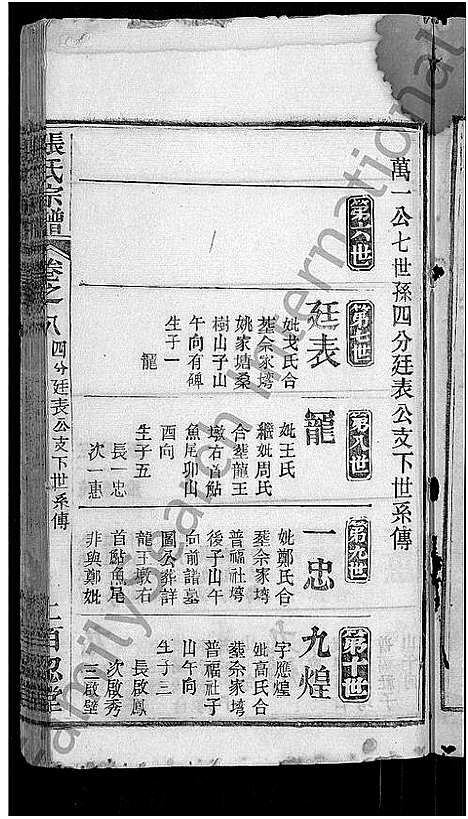 萬一公七世孫四分廷表公支下世系傳
第六世
第七世
廷表
妣戈氏合
塟佘家塆
姚家塘桑
樹山子山
午向有碑
生子一
寵
第八世
寵
妣王氏
繼妣周氏
合塟龍王
墩右首鮎
魚尾卯山
酉向
生子五
長一忠
次一惠
第九世
一忠
妣鄭氏合
塟佘家塆
普福社塆
後子山午
向前譜墓
圖公葬詳
龍王墩右
首鮎魚尾
非與鄭妣
第十世
九煌
字應煌
妣高氏合
塟佘家塆
普福社子
山午向
生子三
長啟鳳
次啟秀
三啟璧
張氏宗譜
卷之八
四分廷表公支下世系傳
一
百忍堂
FamilySearch International